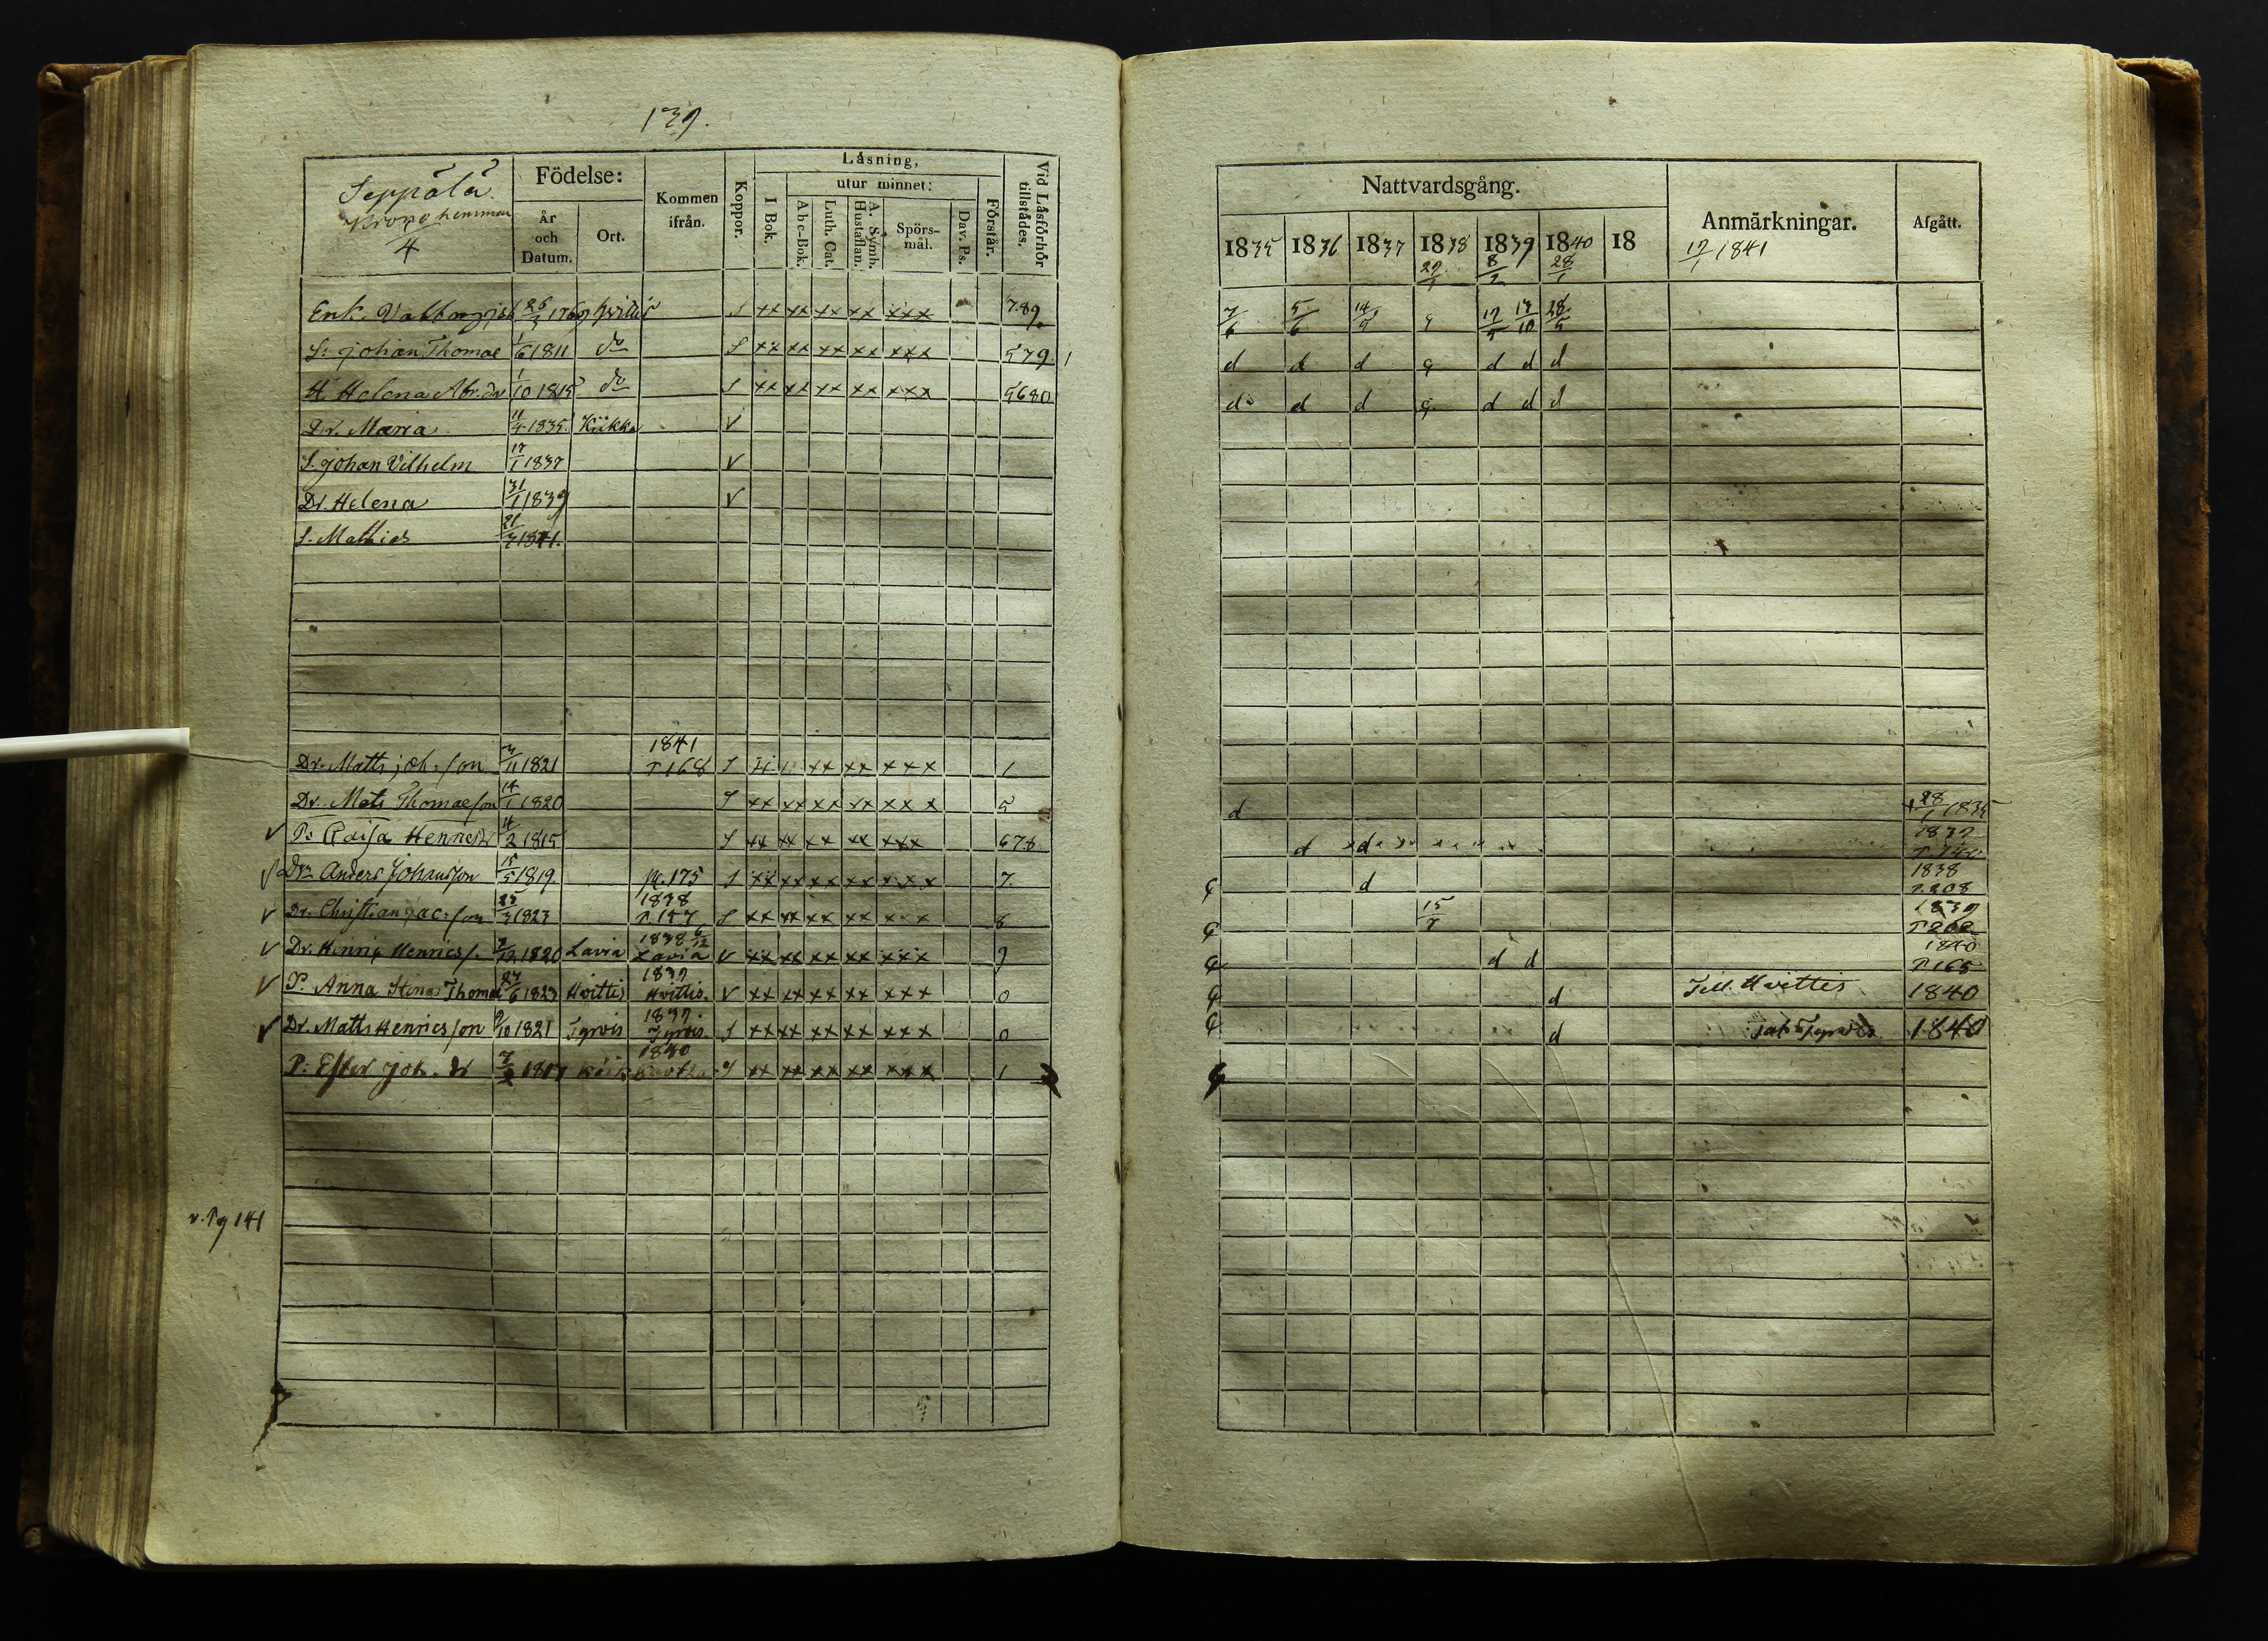 139.
Seppälä
Kronohemman
4
Födelse:
År och Datum.
Ort.
Kommen ifrån.
Koppor.
Läsning,
I Bok.
utur minnet:
A b c-Bok.
Luth. Cat.
A. Symb. Hustaflan.
Spörsmål.
Dav. Ps.
Förstår.
Vid Läsförhör tillstädes.
Enk. Valborg 26/3 1769 S xx xx xx xx xxx 789.
S: Johan Thomae 1/6 1811 do S xx xx xx xx xxx 579. 1
H. Helena Abr. dr 1/10 1815 do S xx xx xx xx xxx 5680
Dr. Maria 11/4 1835. Kiikka V
S. Johan Vilhelm 17/1 1837 V
Dr. Helena 31/1 1839 V
S. Mathias 21/7 1841.
Dr. Matts Joh. son 11 1821 1841 P 168 S xx xx xx xxx 1
Dr. Mats Thomaeson 14/1 1820 S xx xx xx xx xxx 5
P: Caisa Henricsdr 11/2 1815 S xx xx xx xx xxx 678
Dr. Anders Johansson 15/5 1819. pg. 175 S xx xx xx xx xxx 7.
Dr. Christian Jac. son 25/3 1823 1838 P 157 S xx xx xx xx xxx 8
Dr. Henric Henrics. 7/12 1820 Lavia 1838 6/12 Lavia V xx xx xx xx xxx 9
P. Anna Stina Thomae 27/6 1823 Hvittis 1839 Hvittis. V xx xx xx xx xxx 0
Dr. Matts Henricsson 9/10 1821 Tyrvis 1839. Tyrvis. S xx xx xx xx xxx 0
P: Ester Joh. dr 1817 1840 xx xx xx xx xxx 1
v. Pg 141
Nattvardsgång.
Anmärkningar.
17/1 1841
Afgått.
1835 1836 1837 1838 1839 1840 18
29/1 8/2 28/1
7/6 5/6 14/9 g 17/5 13/10 28/5
d d d g d d d
d d d g. d d d
d 28/1 1835
d d 1837 P. 140
d 1838 P. 208
15/7 1839 P 202
d d 1840 P 165
d Till Hvittis 1840
d Tyrvis 1840